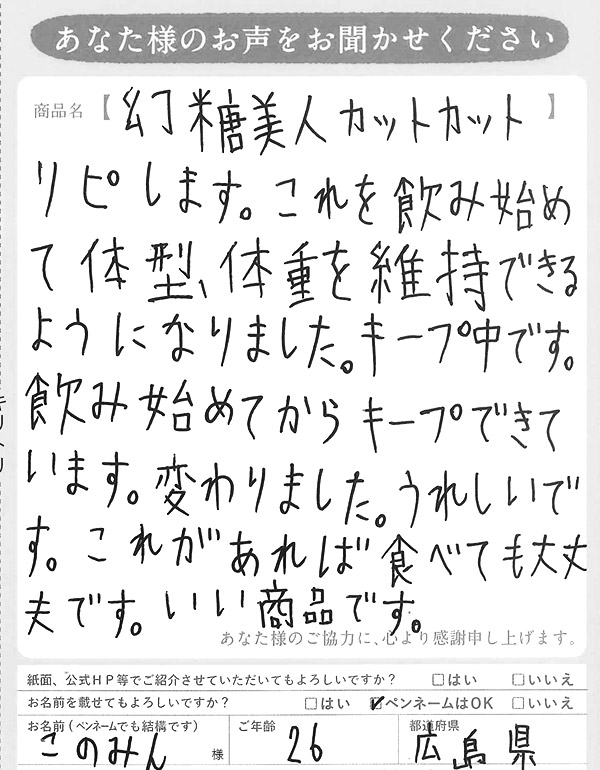 あなた様のお声をお聞かせください
商品名【幻糖美人カットカット】
リピします。これを飲み始め
て体型、体重を維持できる
ようになりました。キープ中です。
飲み始めてからキープできて
います。変わりました。うれしいで
す。これがあれば食べても大丈
夫です。いい商品です。
あなた様のご協力に、心より感謝申し上げます。
キリトリ
紙面、公式HP等でご紹介させていただいてもよろしいですか? □はい □いいえ
お名前を載せてもよろしいですか? □はい ☑ペンネームはOK □いいえ
お名前(ペンネームでも結構です) ご年齢 都道府県
このみん 様 26 広島県